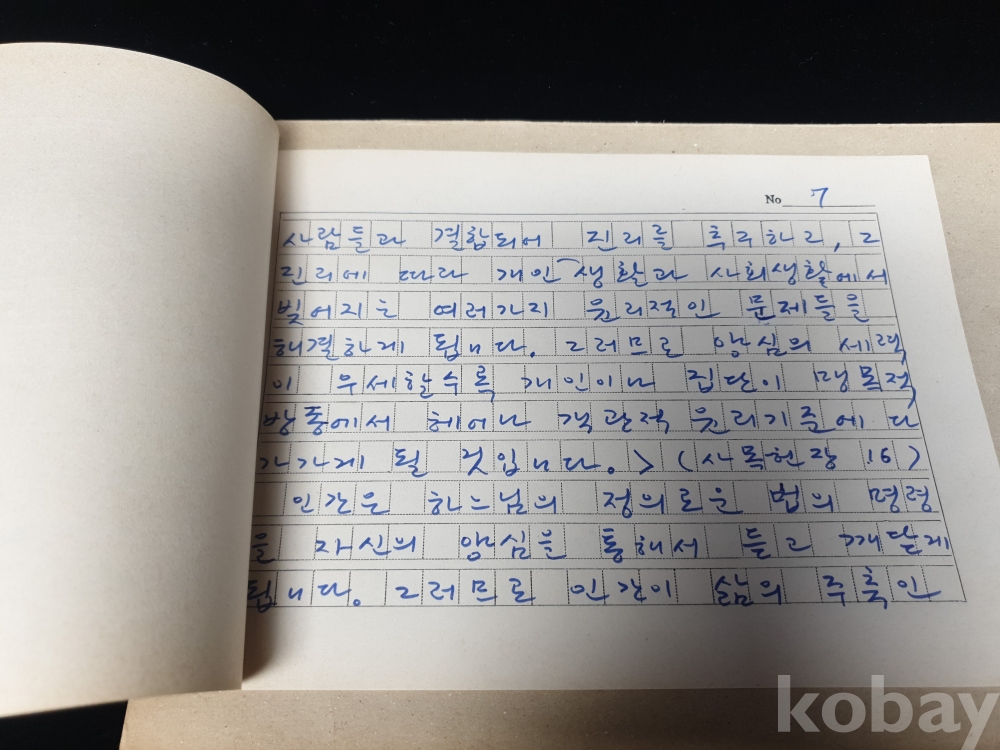 No 7
사람들과 결합되어 진리를 추구하고, 그
진리에 따라 개인생활과 사회생활에서
빚어지는 여러가지 윤리적인 문제들을
해결하게 됩니다. 그러므로 양심의 세력
이 우세할수록 개인이나 집단이 맹목적
방종에서 헤어나 객관적 윤리기준에 다
가가게 될 것입니다.> (사목헌장 16)
인간은 하느님의 정의로운 법의 명령
을 자신의 양심을 통해서 듣고 깨닫게
됩니다. 그러므로 인간이 삶의 주축인
kobay